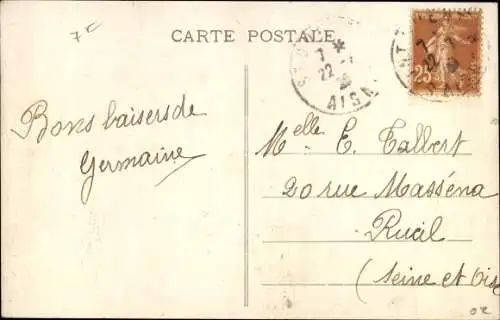 7€
CARTE POSTALE
7 *
22 -
AISN
25
7
22 7
Bons baisers de
Germaine
Melle E. Talbert
20 rue Masséna
Rueil
(Seine et Oise
02